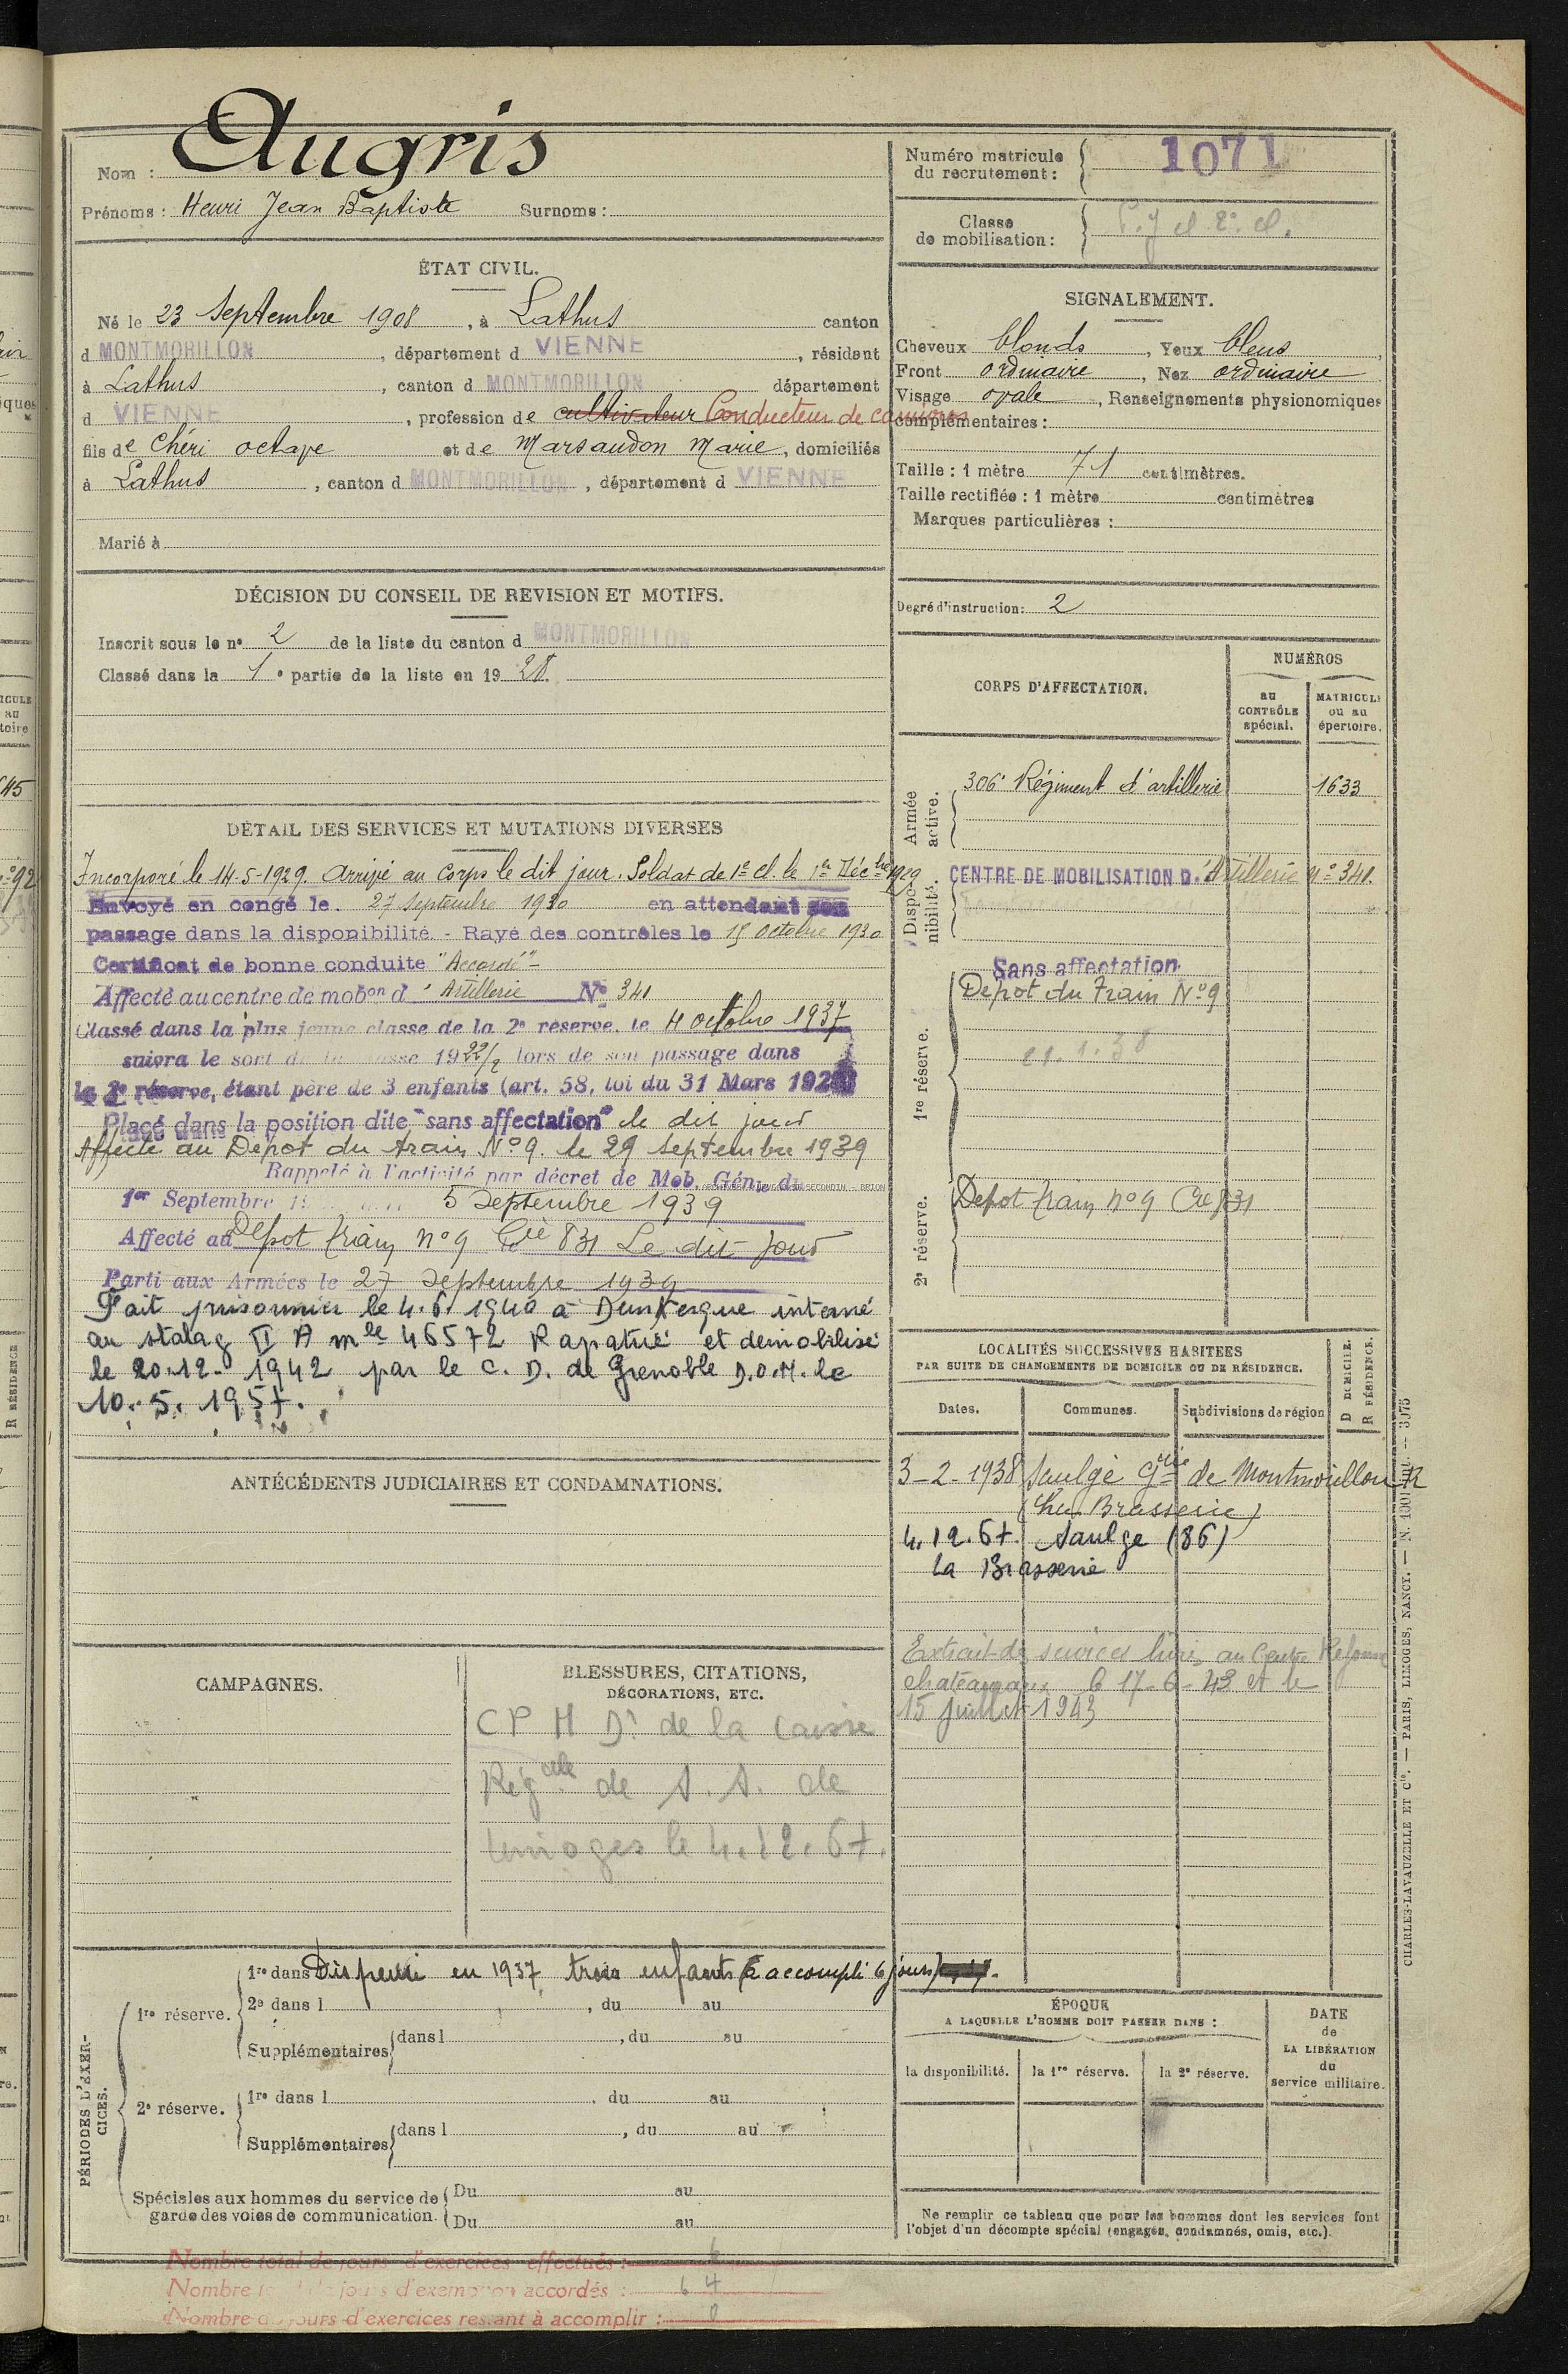 Nom : Augris
Prénoms : Henri Jean Baptiste Surnoms :
ÉTAT CIVIL.
Né le 23 Septembre 1908, à Lathus canton
d MONTMORILLON, département d VIENNE, résidant
à Lathus, canton d MONTMORILLON département
d VIENNE, profession de cultivateur Conducteur de camions
fils de Chéri octave et de Marsaudon Marie, domiciliés
à Lathus, canton d MONTMORILLON, département d VIENNE
Marié à
DÉCISION DU CONSEIL DE REVISION ET MOTIFS.
Inscrit sous le n° 2 de la liste du canton d MONTMORILLON
Classé dans la 1e partie de la liste en 1928.
DÉTAIL DES SERVICES ET MUTATIONS DIVERSES
Incorporé le 14-5-1929. Arrivé au Corps le dit jour. Soldat de 1e cl. le 1er Décbre 1929
Envoyé en congé le 27 Septembre 1930 en attendant son
passage dans la disponibilité - Rayé des contrôles le 15 octobre 1930
Certificat de bonne conduite "Accordé" -
Affecté au centre de mobon d'Artillerie N° 341
Classé dans la plus jeune classe de la 2e réserve, le 4 octobre 1937
suivra le sort de la classe 1922/2 lors de son passage dans
la 2e réserve, étant père de 3 enfants (art. 58, loi du 31 Mars 1928
Placé dans la position dite "sans affectation" le dit jour
Affecté au Dépot du train N°9. le 29 septembre 1939
Rappelé à l'activité par décret de Mob. Génle du
1er Septembre 5 Septembre 1939
Affecté au Dépot train n°9 Cie 831 Le dit jour
Parti aux Armées le 27 Septembre 1939
Fait prisonnier le 4.6.1940 à Dunkerque interné
au stalag II A mle 46572 Rapatrié et démobilisé
le 20.12.1942 par le C. D. de Grenoble D.O.M. le
10.5.1957.
ANTÉCÉDENTS JUDICIAIRES ET CONDAMNATIONS.
CAMPAGNES.
BLESSURES, CITATIONS,
DÉCORATIONS, ETC.
CPM Dr de la Caisse
Régale de S. S. de
Limoges le 4.12.67.
PÉRIODES D'EXERCICES.
1re réserve.
1re dans Dispensé en 1937 trois enfants (a accompli 6 jours)
2e dans l , du au
Supplémentaires dans l , du au
2e réserve.
1re dans l du au
Supplémentaires dans l , du au
Spéciales aux hommes du service de Du au
garde des voies de communication. Du au
Nombre total de jours d'exercices effectués : 6
Nombre de jours d'exemption accordés : 64
Nombre de jours d'exercices restant à accomplir : 0
Numéro matricule
du recrutement : 1071
Classe
de mobilisation :
SIGNALEMENT.
Cheveux blonds, Yeux bleus,
Front ordinaire, Nez ordinaire
Visage ovale, Renseignements physionomiques
complémentaires :
Taille : 1 mètre 71 centimètres.
Taille rectifiée : 1 mètre centimètres
Marques particulières :
Degré d'instruction : 2
CORPS D'AFFECTATION.
NUMÉROS
au
CONTRÔLE
spécial.
MATRICULE
ou au
épertoire.
Armée active.
306e Régiment d'artillerie 1633
Disponibilité.
CENTRE DE MOBILISATION D'Artillerie n° 341.
1re réserve.
Sans affectation
Dépot du train N°9
21.1.38
2e réserve.
Dépot train n°9 Cie 831
LOCALITÉS SUCCESSIVES HABITEES
PAR SUITE DE CHANGEMENTS DE DOMICILE OU DE RÉSIDENCE.
Dates. Communes. Subdivisions de région
D DOMICILE.
R RÉSIDENCE.
3-2-1938 Saulgé de Montmorillon R
Brasserie)
4.12.67. Saulgé (86)
La Brasserie
Extrait de services au Centre Réforme
Chateauroux le 17-6-43 et le
15 Juillet 1943
ÉPOQUE
A LAQUELLE L'HOMME DOIT PASSER DANS :
la disponibilité. la 1re réserve. la 2e réserve.
DATE
de
LA LIBÉRATION
du
service militaire.
Ne remplir ce tableau que pour les hommes dont les services font
l'objet d'un décompte spécial (engagés, condamnés, omis, etc.).
CHARLES-LAVAUZELLE ET Cie. — PARIS, LIMOGES, NANCY.